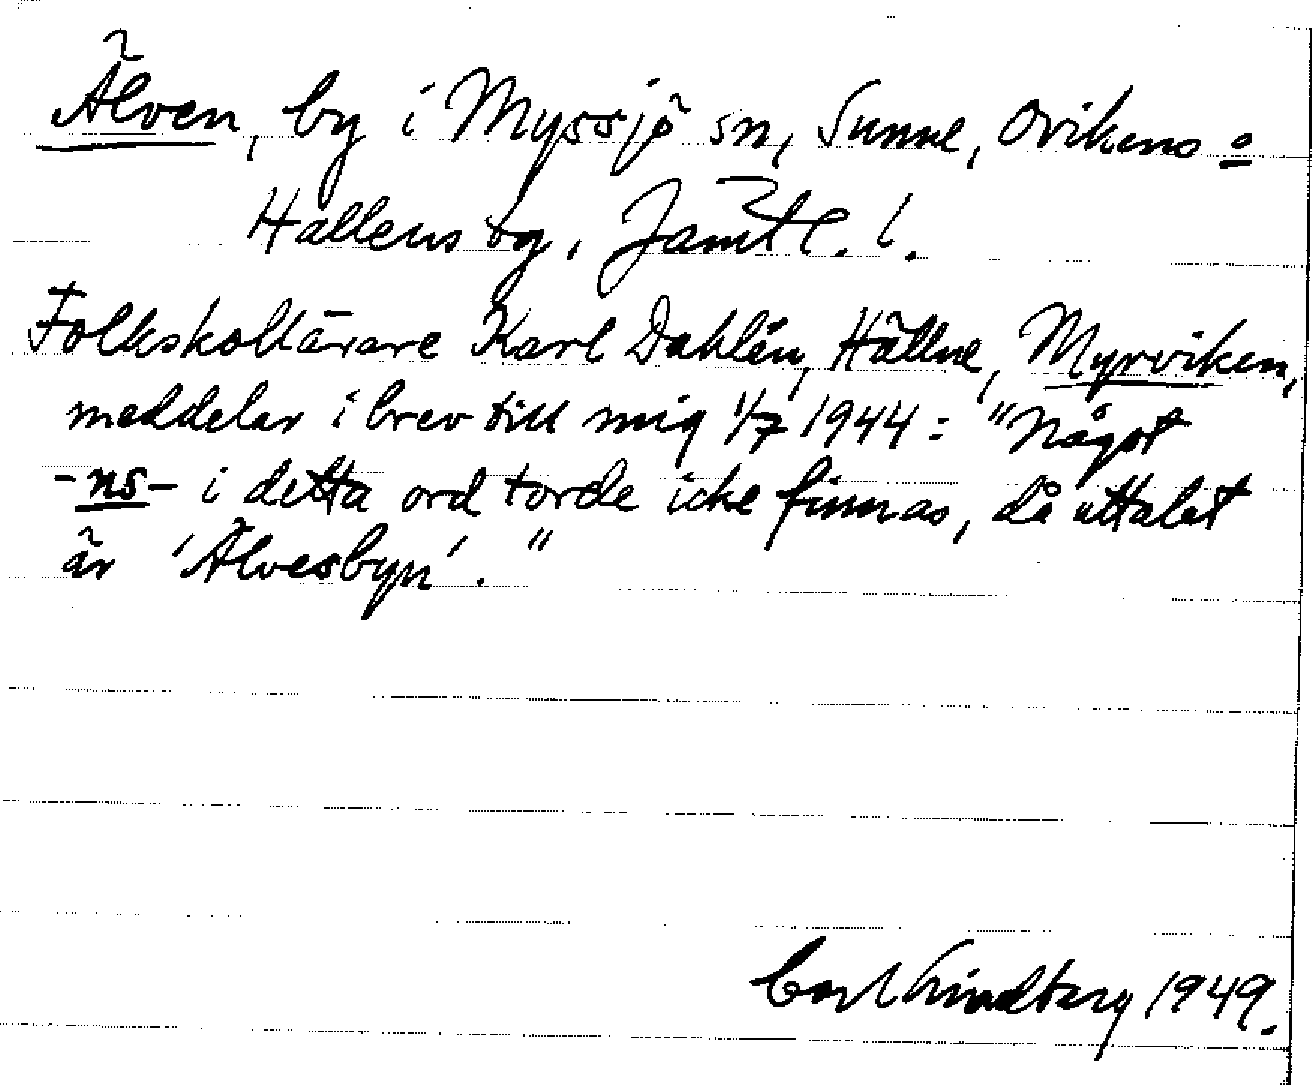 Älven, by i Myssjö sn, Sunne, Ovikens o
Hallens tg, Jämtl. l.
Folkskollärare Karl Dahlén, Hällne, Myrviken,
meddelar i brev till mig 1/7 1944: "Något
-ns- i detta ord torde icke finnas, då uttalet
är 'Älvesbyn'."
Carl Lindberg 1949.